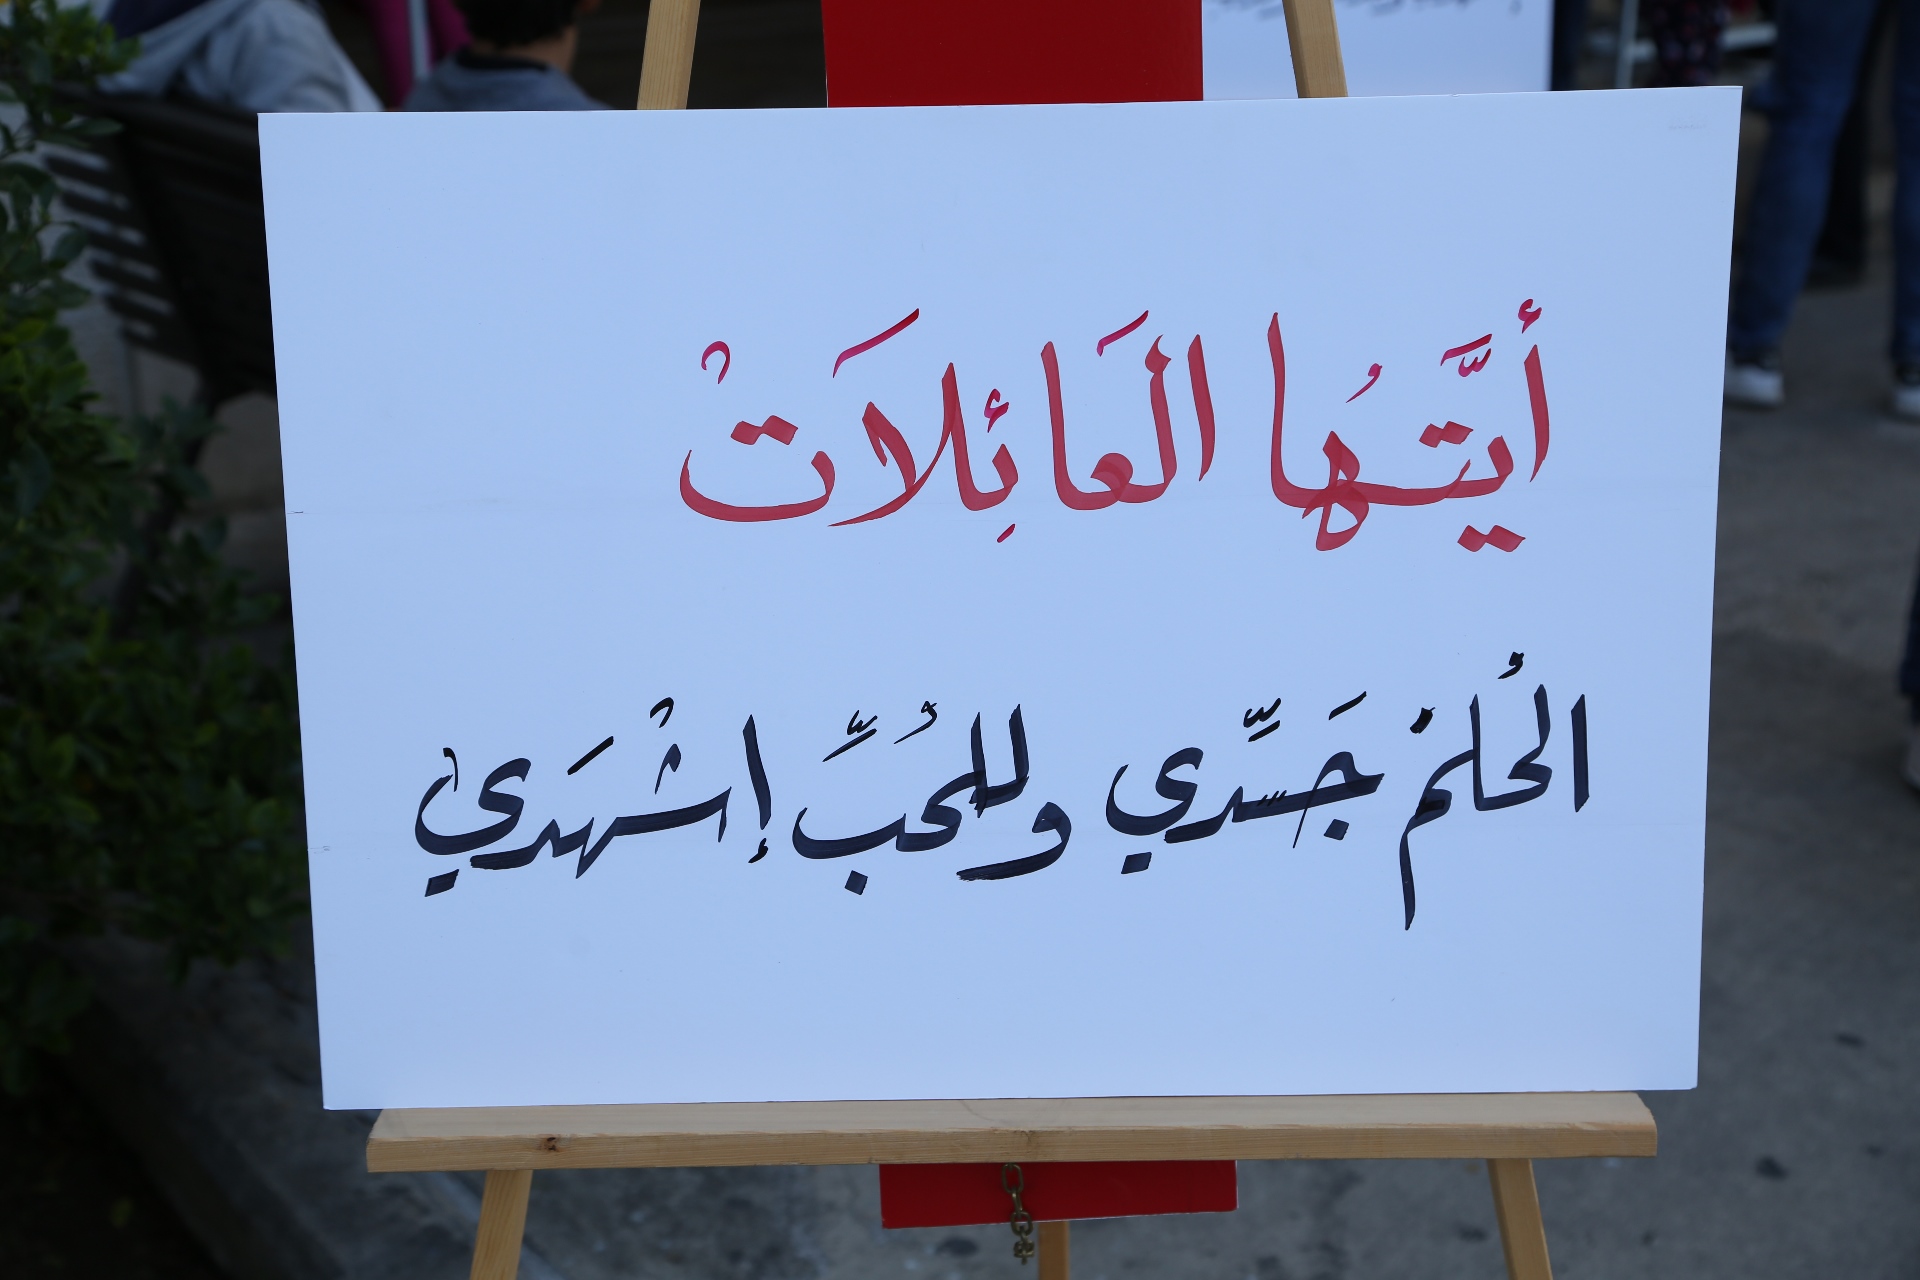 أيَّتُها العَائِلَاتْ
الحُلمْ جَسِّدي وللحُبِّ إشْهَدي